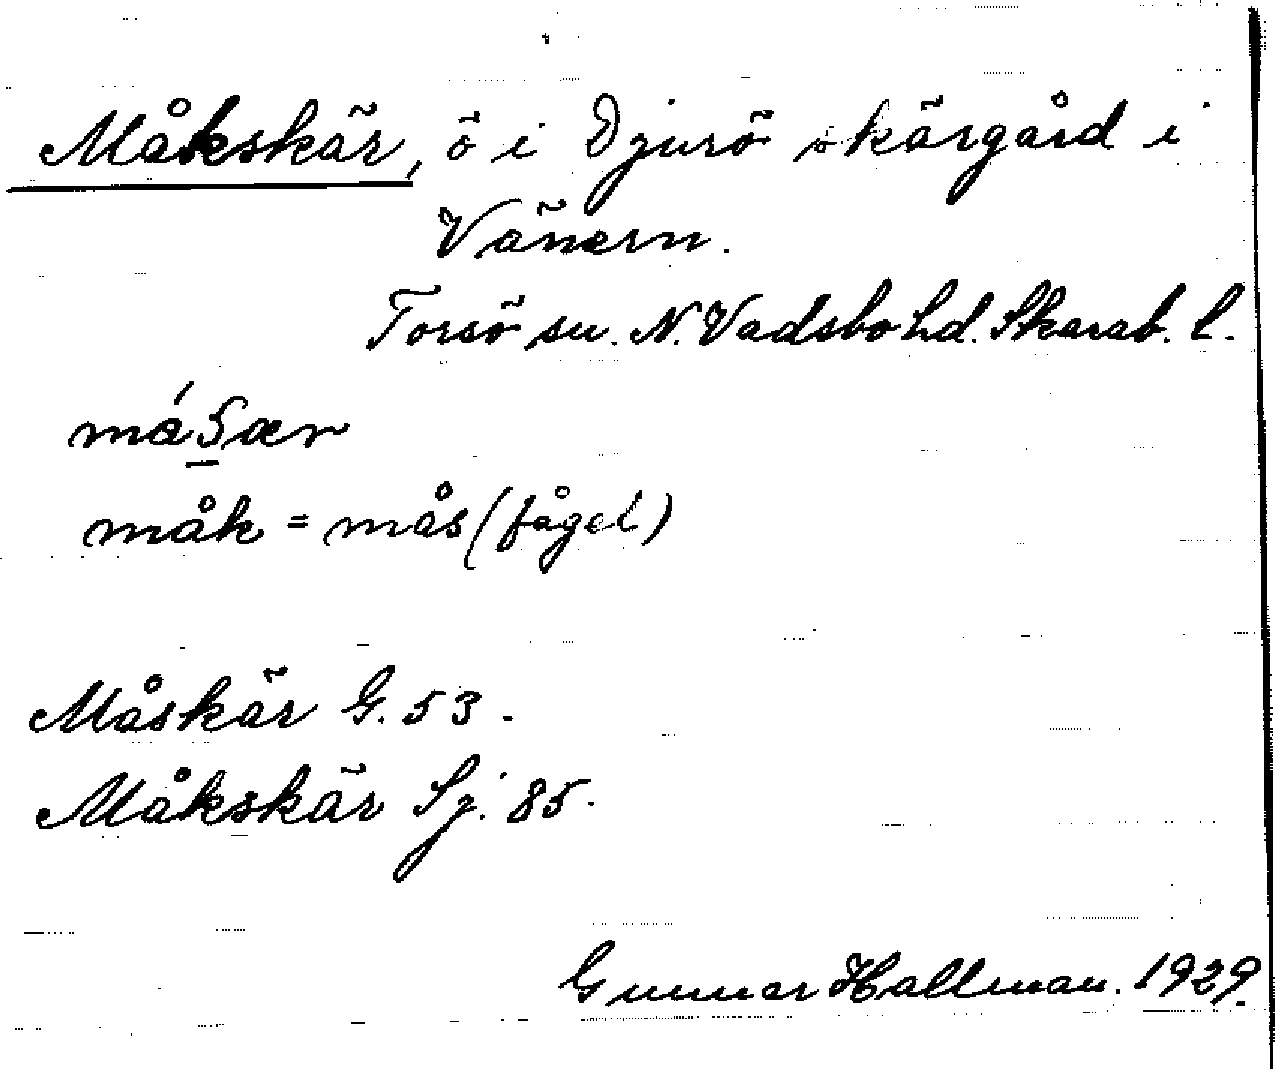 Måkskär, ö i Djurö skärgård i
Vänern.
Torsö sn. N. Vadsbo hd. Skarab. l.
måk = mås (fågel)
Måskär G. 53.
Måkskär Sj. 85.
Gunnar Hallman. 1929.